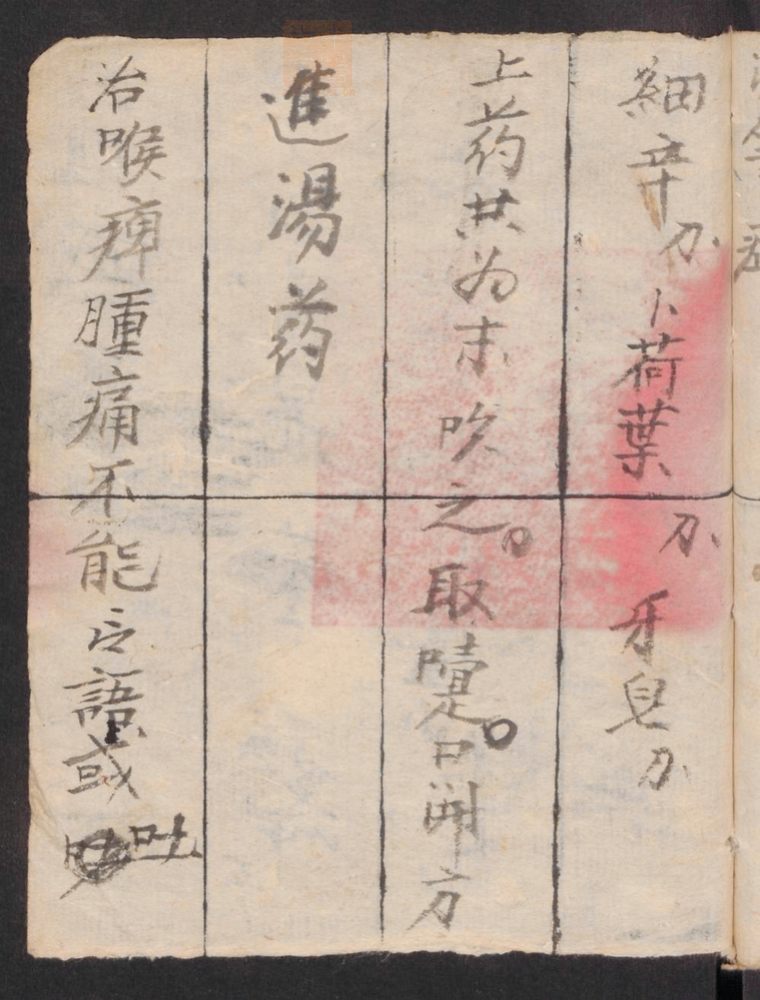 細辛 卜荷葉 牙皂
上药共為末吹之。取嚏。口開方
進湯药
治喉痺腫痛不能言語或吐